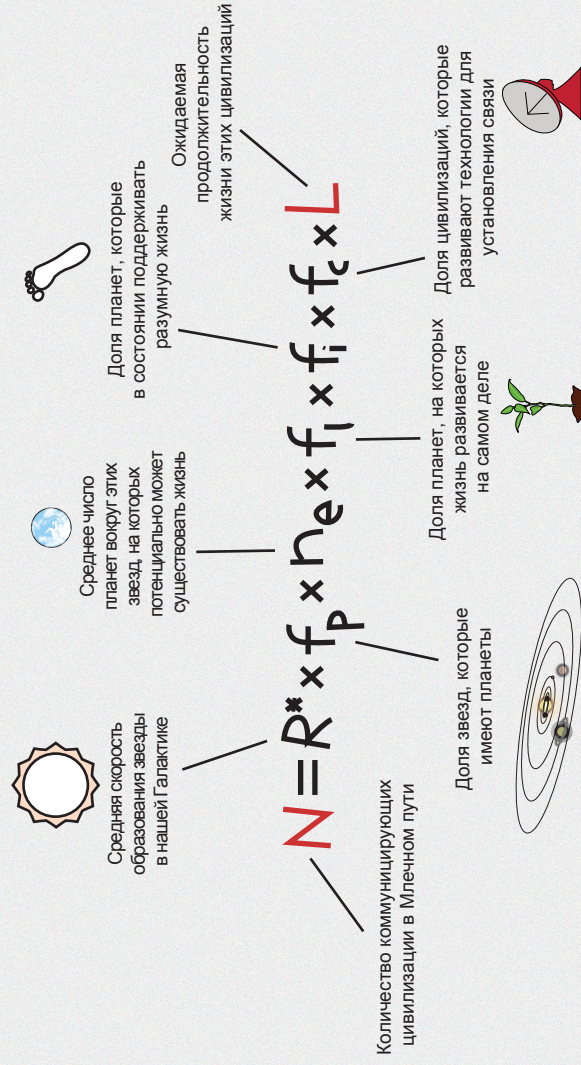 Средняя скорость
образования звезды
в нашей Галактике
Среднее число
планет вокруг этих
звезд, на которых
потенциально может
существовать жизнь
Доля планет, которые
в состоянии поддерживать
разумную жизнь
Ожидаемая
продолжительность
жизни этих цивилизаций
N = R* × fp × ne × fl × fi × fc × L
Количество коммуницирующих
цивилизации в Млечном пути
Доля звезд, которые
имеют планеты
Доля планет, на которых
жизнь развивается
на самом деле
Доля цивилизаций, которые
развивают технологии для
установления связи